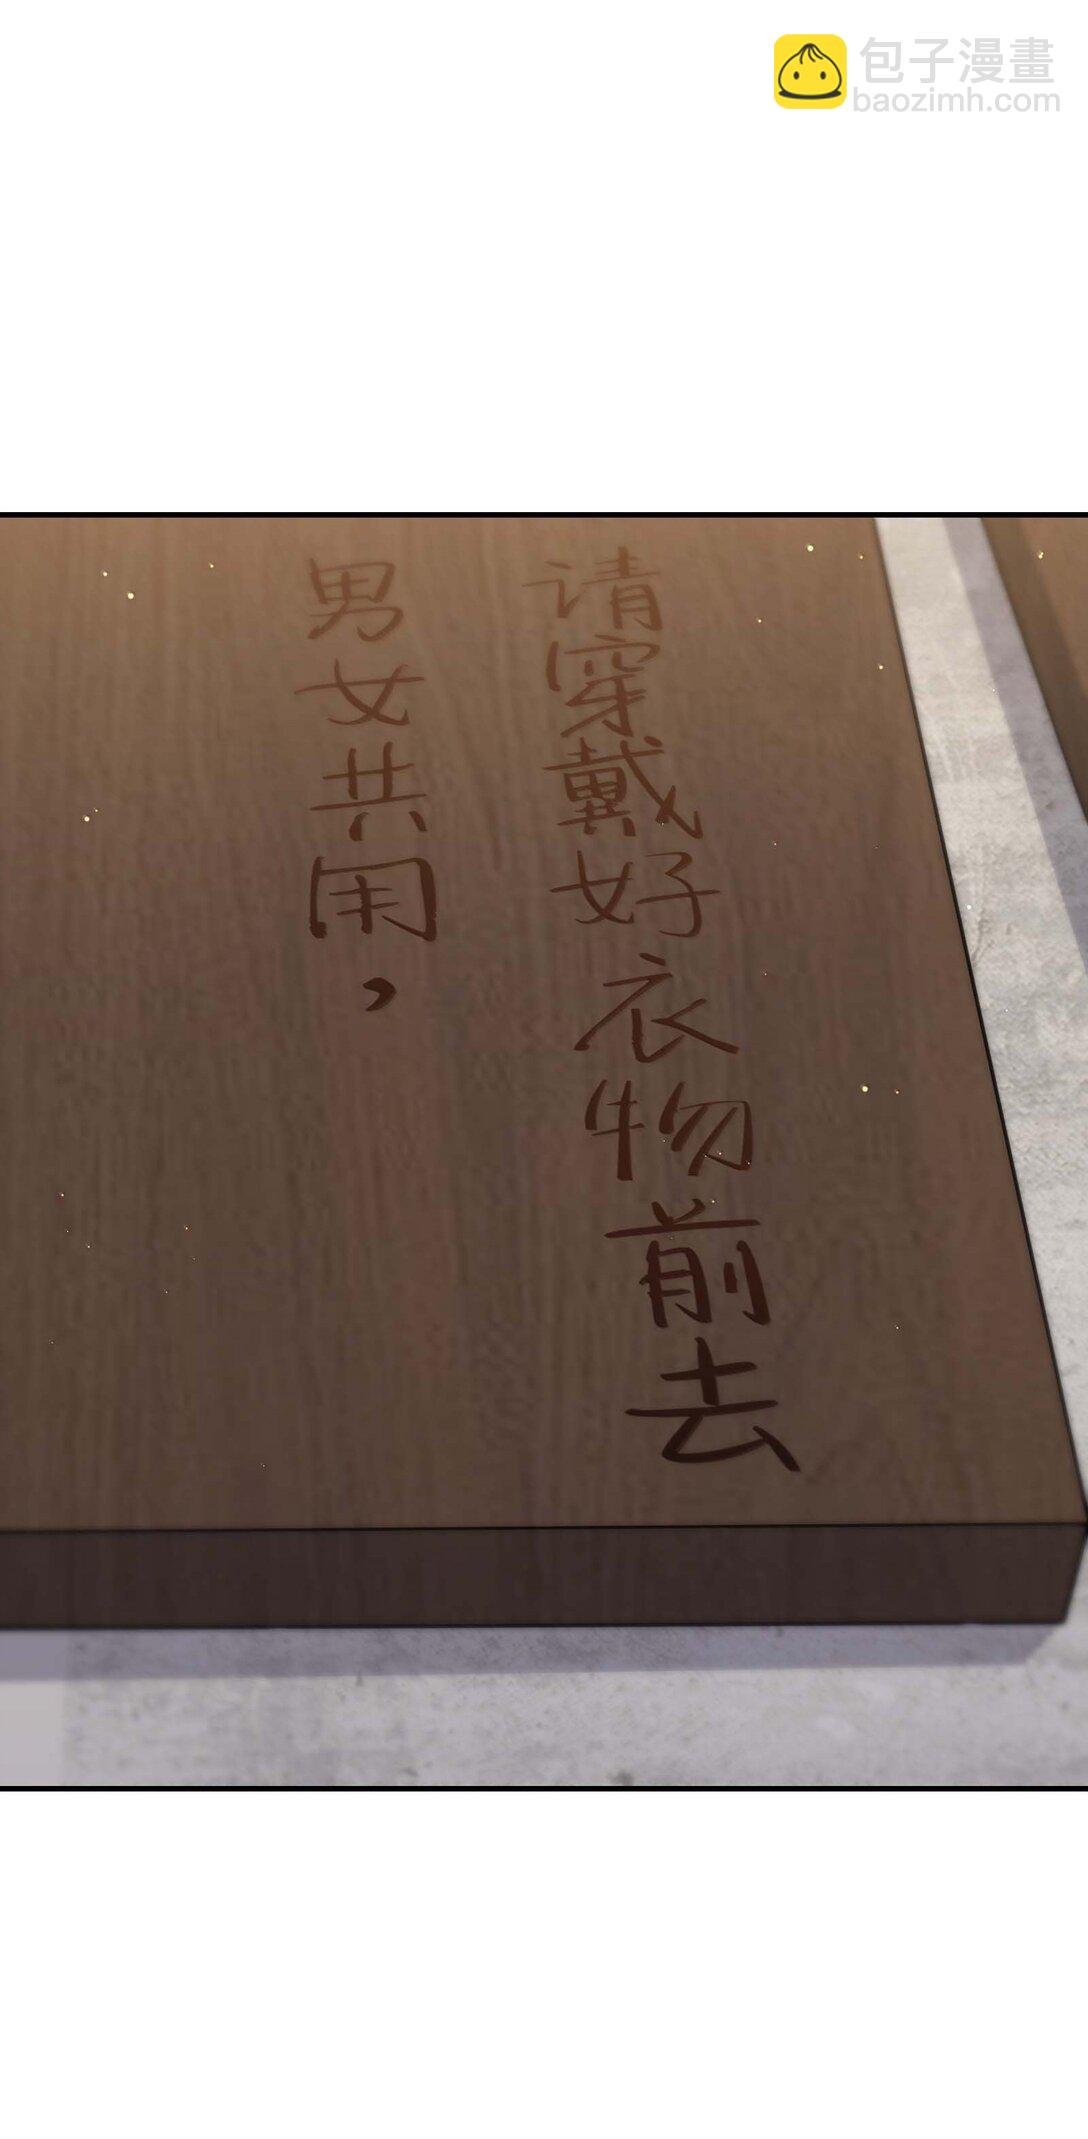 包子漫畫
baozimh.com
男女共，
请穿戴好衣物前去